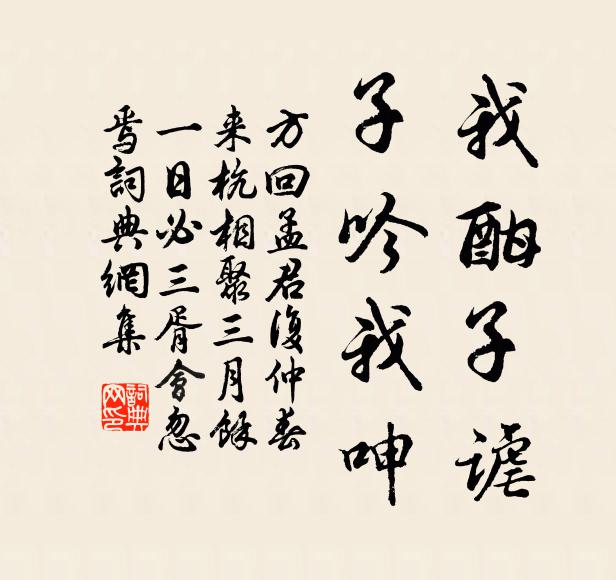 我酣子謔
子吟我呻
方回孟君復仲春
来杭相聚三月餘
一日必三胥會忽
焉詞典網集
詞典
网印